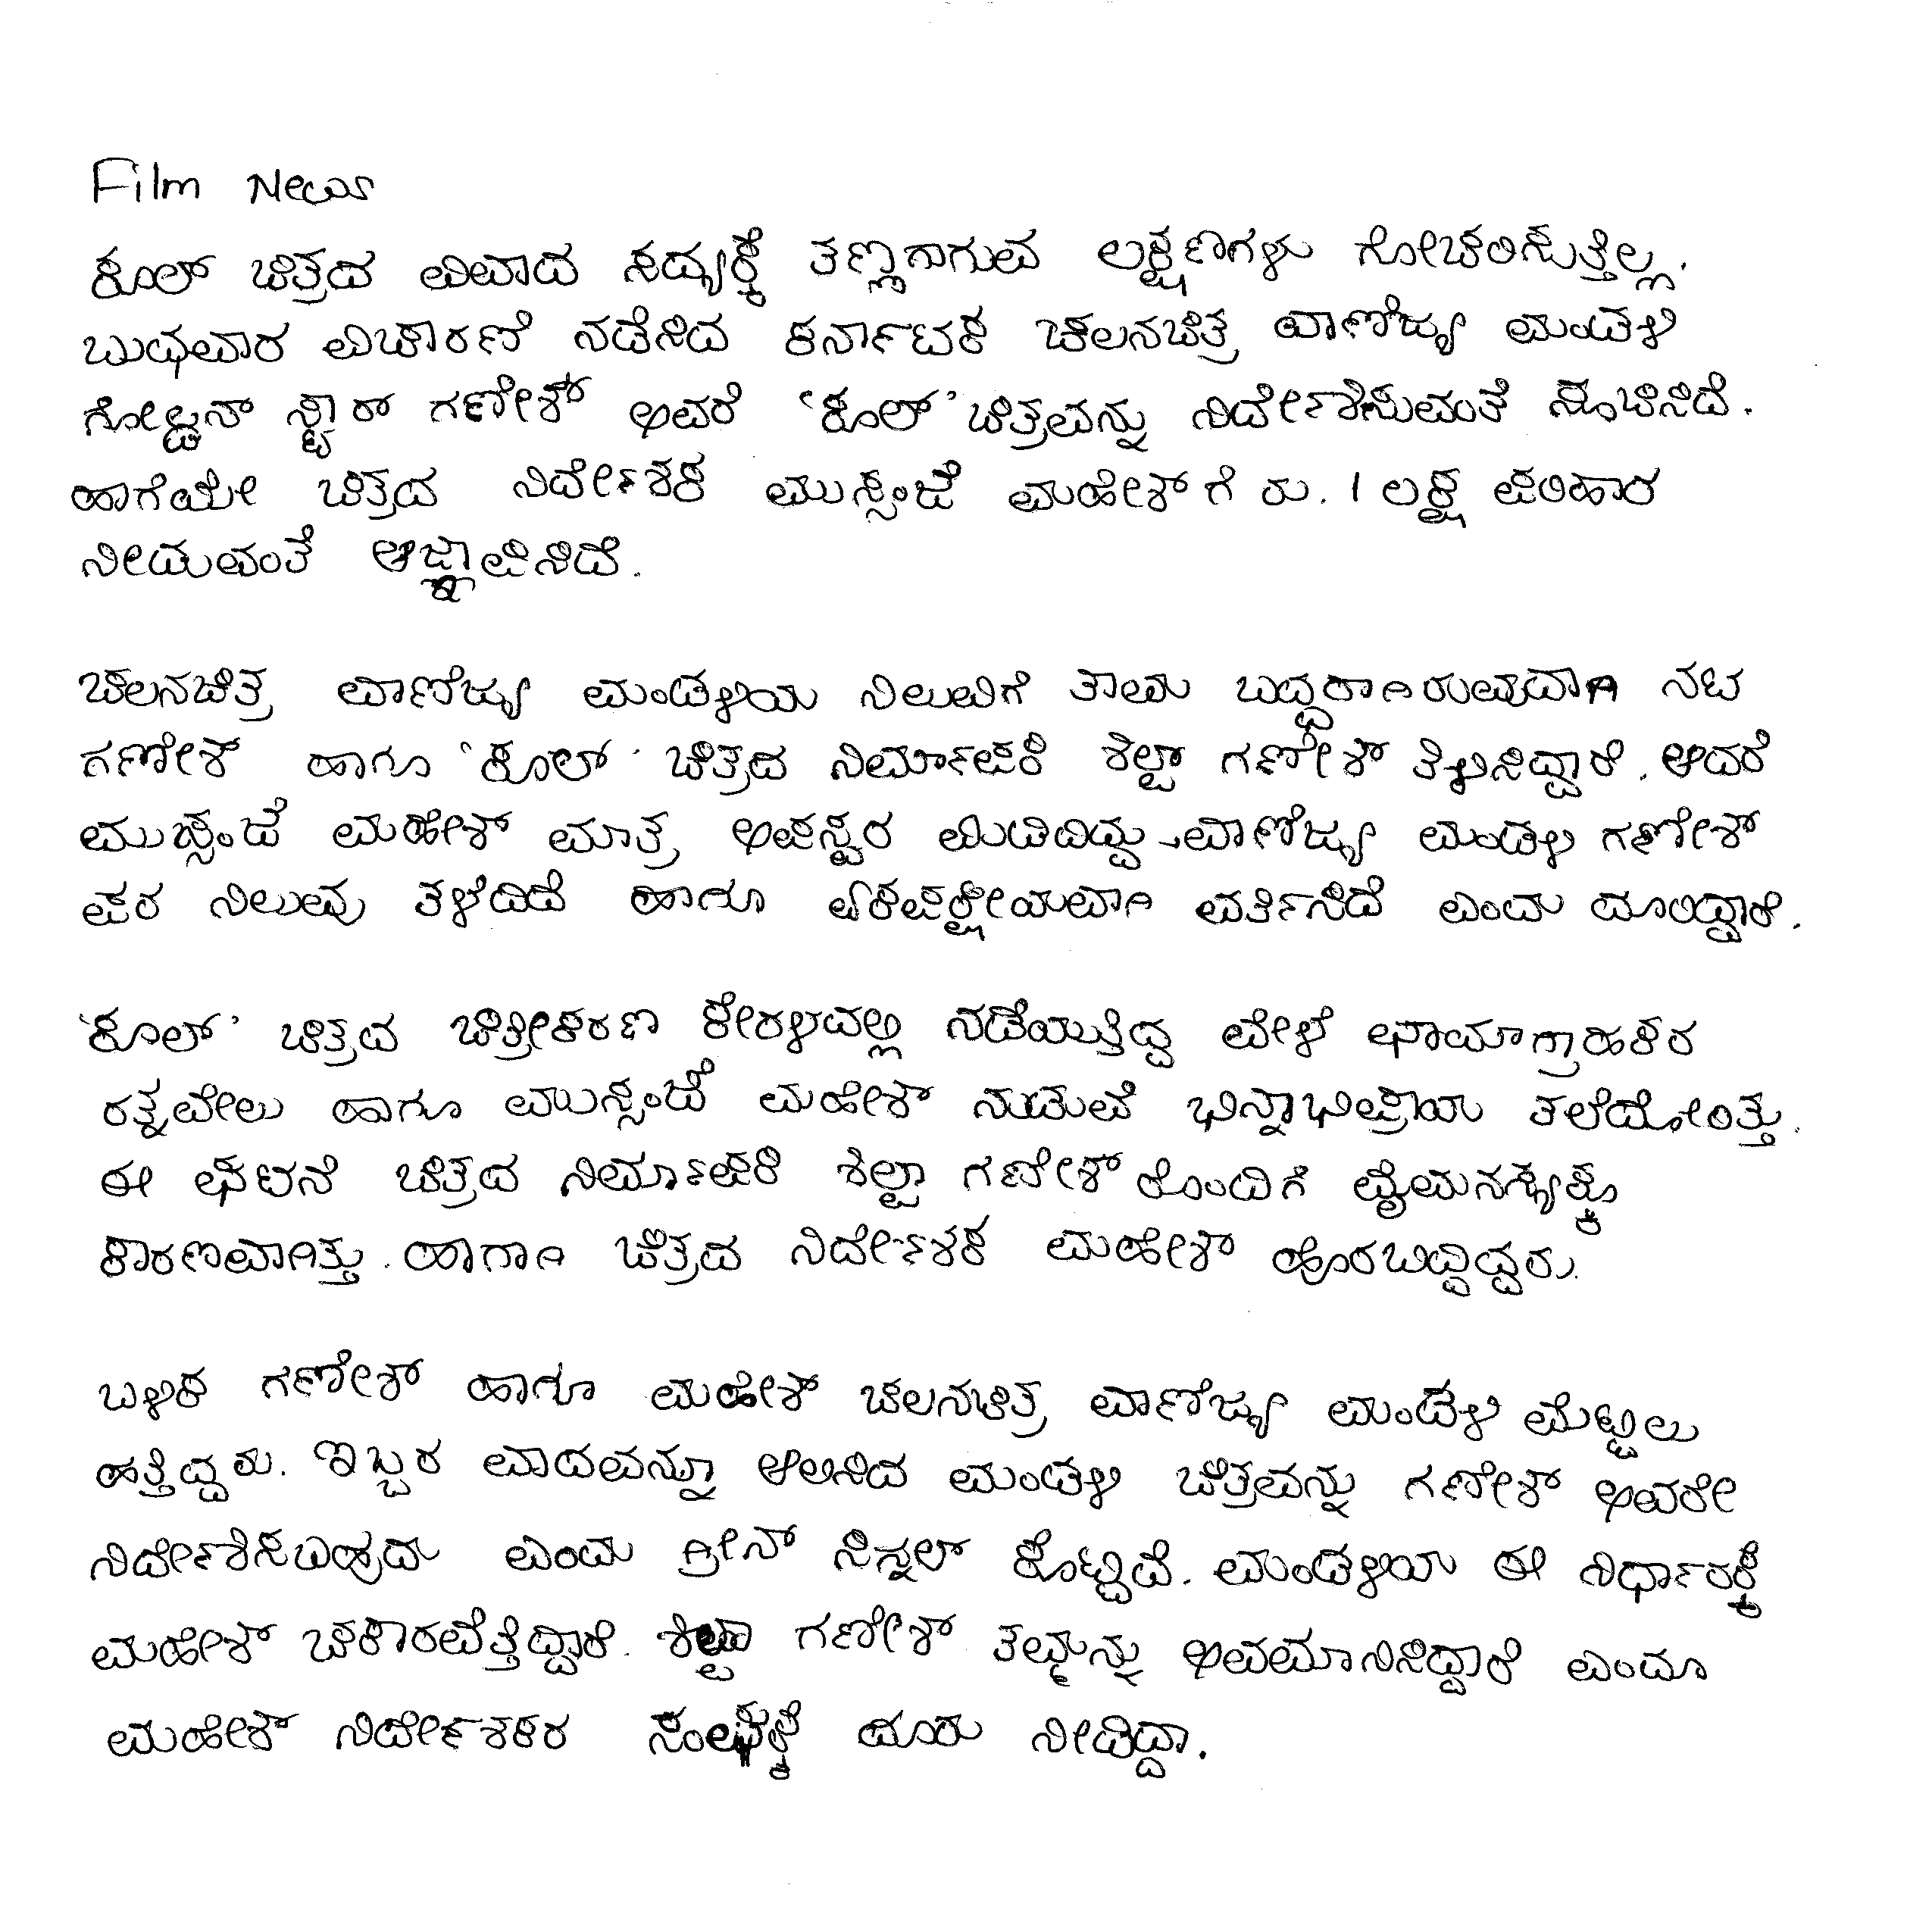 Film News
ಕೂಲ್ ಚಿತ್ರದ ವಿವಾದ ಸದ್ಯಕ್ಕೆ ತಣ್ಣಗಾಗುವ ಲಕ್ಷಣಗಳು ಗೋಚರಿಸುತ್ತಿಲ್ಲ.
ಬುಧವಾರ ವಿಚಾರಣೆ ನಡೆಸಿದ ಕರ್ನಾಟಕ ಚಲನಚಿತ್ರ ವಾಣಿಜ್ಯ ಮಂಡಳಿ
ಗೋಲ್ಡನ್ ಸ್ಟಾರ್ ಗಣೇಶ್ ಅವರೆ 'ಕೂಲ್' ಚಿತ್ರವನ್ನು ನಿರ್ದೇಶಿಸುವಂತೆ ಸೂಚಿಸಿದೆ.
ಹಾಗೆಯೇ ಚಿತ್ರದ ನಿರ್ದೇಶಕ ಮುಸ್ಸಂಜೆ ಮಹೇಶ್ ಗೆ ರು. 1 ಲಕ್ಷ ಪರಿಹಾರ
ನೀಡುವಂತೆ ಆಜ್ಞಾಪಿಸಿದೆ.
ಚಲನಚಿತ್ರ ವಾಣಿಜ್ಯ ಮಂಡಳಿಯ ನಿಲುವಿಗೆ ತಾವು ಬದ್ಧರಾಗಿರುವುದಾಗಿ ನಟ
ಗಣೇಶ್ ಹಾಗೂ 'ಕೂಲ್' ಚಿತ್ರದ ನಿರ್ಮಾಪಕಿ ಶಿಲ್ಪಾ ಗಣೇಶ್ ತಿಳಿಸಿದ್ದಾರೆ. ಆದರೆ
ಮುಸ್ಸಂಜೆ ಮಹೇಶ್ ಮಾತ್ರ ಅಪಸ್ವರ ಮಿಡಿದಿದ್ದು ವಾಣಿಜ್ಯ ಮಂಡಳಿ ಗಣೇಶ್
ಪರ ನಿಲುವು ತಳೆದಿದೆ ಹಾಗೂ ಏಕಪಕ್ಷೀಯವಾಗಿ ವರ್ತಿಸಿದೆ ಎಂದು ದೂರಿದ್ದಾರೆ.
'ಕೂಲ್' ಚಿತ್ರದ ಚಿತ್ರೀಕರಣ ಕೇರಳದಲ್ಲಿ ನಡೆಯುತ್ತಿದ್ದ ವೇಳೆ ಛಾಯಾಗ್ರಾಹಕರ
ರತ್ನವೇಲು ಹಾಗೂ ಮುಸ್ಸಂಜೆ ಮಹೇಶ್ ನಡುವೆ ಭಿನ್ನಾಭಿಪ್ರಾಯ ತಲೆದೋರಿತ್ತು.
ಈ ಘಟನೆ ಚಿತ್ರದ ನಿರ್ಮಾಪಕಿ ಶಿಲ್ಪಾ ಗಣೇಶ್ ರೊಂದಿಗೆ ವೈಮನಸ್ಯಕ್ಕೂ
ಕಾರಣವಾಗಿತ್ತು. ಹಾಗಾಗಿ ಚಿತ್ರದ ನಿರ್ದೇಶಕ ಮಹೇಶ್ ಹೊರಬಿದ್ದಿದ್ದರು.
ಬಳಿಕ ಗಣೇಶ್ ಹಾಗೂ ಮಹೇಶ್ ಚಲನಚಿತ್ರ ವಾಣಿಜ್ಯ ಮಂಡಳಿ ಮೆಟ್ಟಿಲು
ಹತ್ತಿದ್ದರು. ಇಬ್ಬರ ವಾದವನ್ನೂ ಆಲಿಸಿದ ಮಂಡಳಿ ಚಿತ್ರವನ್ನು ಗಣೇಶ್ ಅವರೇ
ನಿರ್ದೇಶಿಸಬಹುದು ಎಂದು ಗ್ರೀನ್ ಸಿಗ್ನಲ್ ಕೊಟ್ಟಿದೆ. ಮಂಡಳಿಯ ಈ ನಿರ್ಧಾರಕ್ಕೆ
ಮಹೇಶ್ ಚಕಾರವೆತ್ತಿದ್ದಾರೆ. ಶಿಲ್ಪಾ ಗಣೇಶ್ ತಮ್ಮನ್ನು ಅವಮಾನಿಸಿದ್ದಾರೆ ಎಂದೂ
ಮಹೇಶ್ ನಿರ್ದೇಶಕರ ಸಂಘಕ್ಕೆ ದೂರು ನೀಡಿದ್ದಾ.